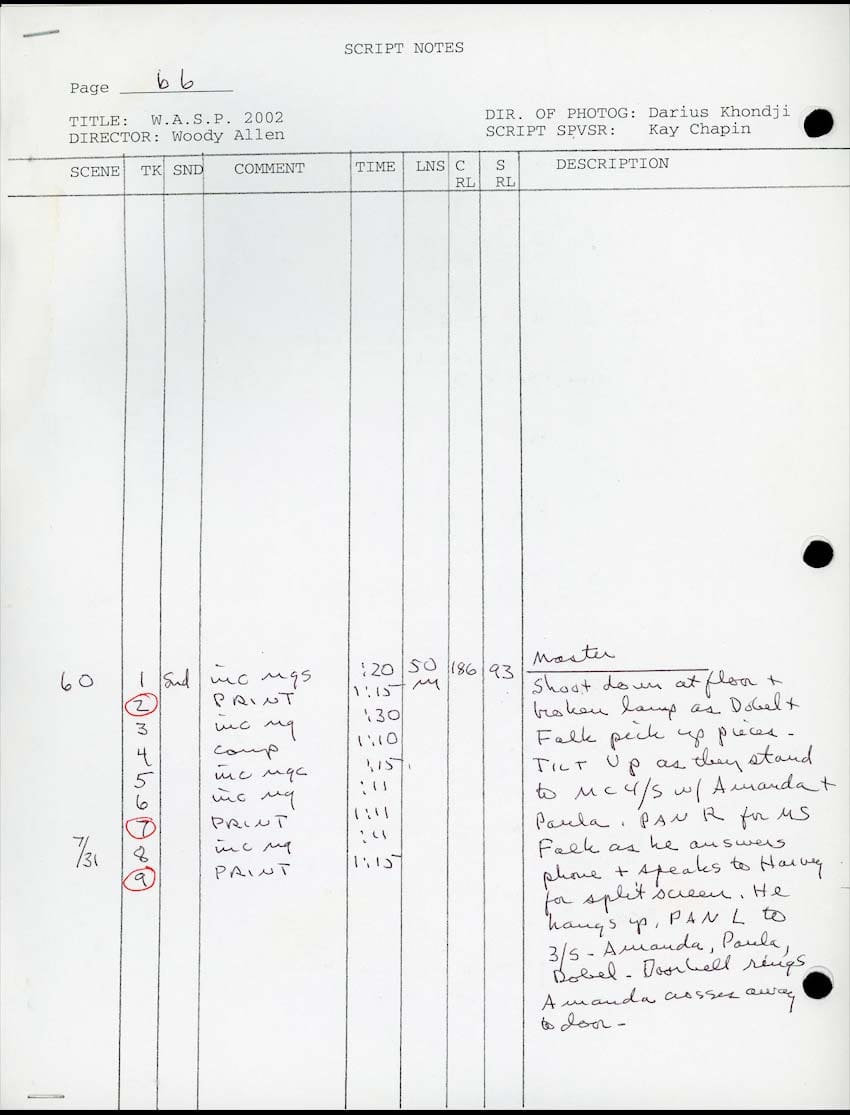 SCRIPT NOTES
Page 66
TITLE: W.A.S.P. 2002
DIRECTOR: Woody Allen
DIR. OF PHOTOG: Darius Khondji
SCRIPT SPVSR: Kay Chapin
SCENE TK SND COMMENT TIME LNS C RL S RL DESCRIPTION
60 1 Snd inc ngs :20 50 186 93
2 PRINT 1:15
3 inc ng :30
4 comp 1:10
5 inc ngc :15
6 inc ng :11
7 PRINT 1:11
7/31 8 inc ng :11
9 PRINT 1:15
Master
Shoot down at floor +
broken lamp as Dobel +
Falk pick up pieces -
TILT UP as they stand
to MC 4/S w/ Amanda +
Paula. PAN R for MS
Falk as he answers
phone + speaks to Harvey
for split screen. He
hangs up, PAN L to
3/S - Amanda, Paula,
Dobel - Doorbell rings
Amanda crosses away
to door -